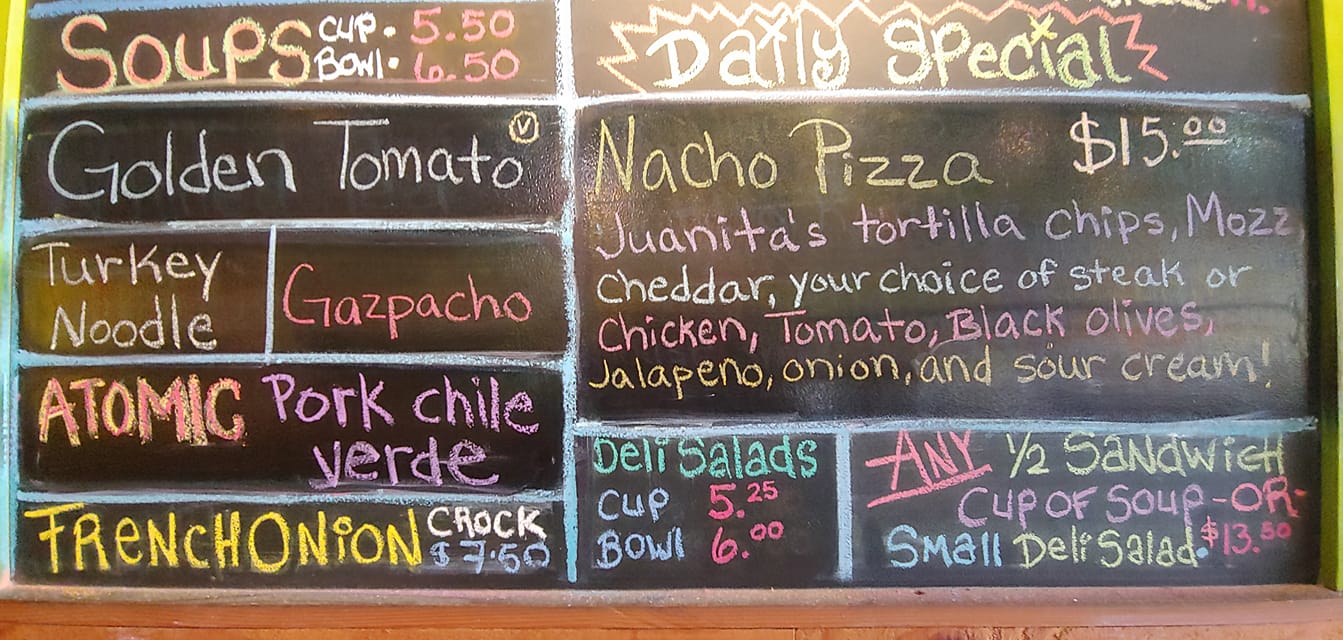 Soups CUP. 5.50
BOWl. 6.50
Golden Tomato V
Turkey
Noodle
Gazpacho
ATOMIC Pork chile
verde
FRENCH ONiON CROCK
$7.50
Daily Special
Nacho Pizza $15.00
Juanita's tortilla chips, Mozz
Cheddar, your choice of steak or
Chicken, Tomato, Black olives,
Jalapeno, onion, and sour cream!
Deli Salads
CUP 5.25
BOWl 6.00
ANY 1/2 SANDWiCH
CUP OF SOUP -OR-
SMall Deli Salad. $13.50